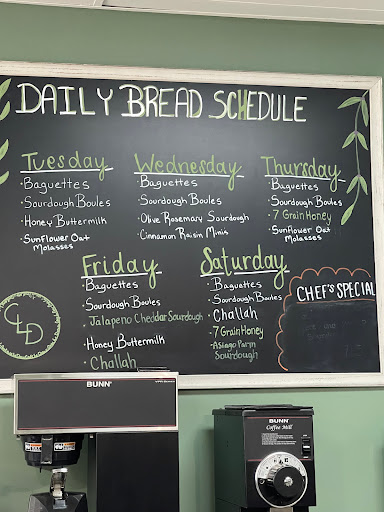 DAILY BREAD SCHEDULE
Tuesday
·Baguettes
·Sourdough Boules
·Honey Buttermilk
·Sunflower Oat
Molasses
Wednesday
·Baguettes
·Sourdough Boules
·Olive Rosemary Sourdough
·Cinnamon Raisin Minis
Thursday
·Baguettes
·Sourdough Boules
·7 Grain Honey
·Sunflower Oat
Molasses
Friday
·Baguettes
·Sourdough Boules
·Jalapeno Cheddar Sourdough
·Honey Buttermilk
·Challah
Saturday
·Baguettes
·Sourdough Boules
·Challah
·7 Grain Honey
·Asiago Parm
Sourdough
CHEF'S SPECIAL
CLD
BUNN
BUNN
Coffee Mill